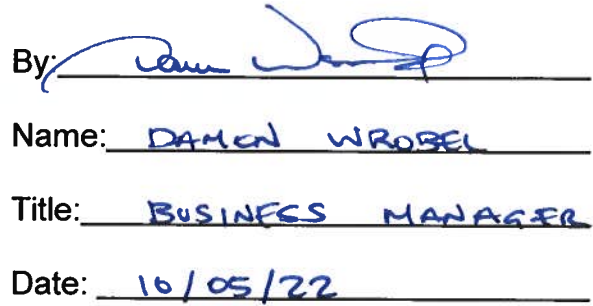 By:
Name: DAMON WROBEL
Title: BUSINESS MANAGER
Date: 10/05/22